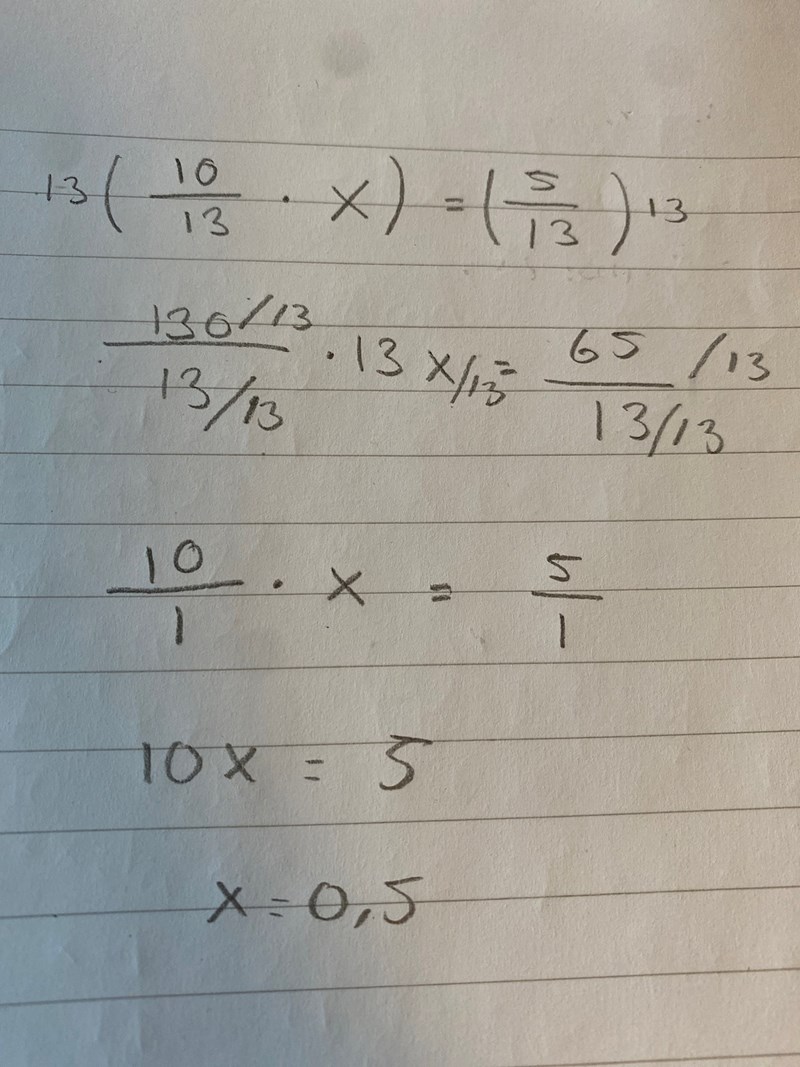 13 ( 10/13 · x ) = ( 5/13 ) 13
130/13 / 13/13 · 13 x/13 = 65/13 / 13/13
10/1 · x = 5/1
10x = 5
x = 0,5